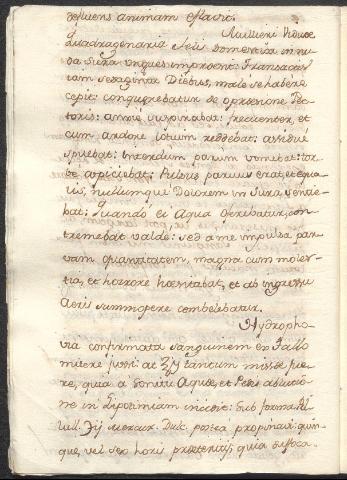 defluens animam efflavit.
Mulieri Viduæ
Quadragenariæ Felis domestica in nu-
da Sura ungues impressit: Transactis
iam sexaginta Diebus, malè se habere
cepit: conquerebatur de opressione Pec-
toris: anxiè suspirabat: frecuenter, et
cum ardore lotium reddebat: assiduè
spuebat: interdum parum vomebat: tor-
vè aspiciebat: Pulsus parvus erat, et equa-
lis, nullumque Dolorem in Sura sentie-
bat: Quando ei Aqua oferebatur, con-
tremebat valde: sed a me impulsa par-
vam quantitatem, magna cum moles-
tia, et horrore hoeritabat, et ab ingressu
Aeris summopere combelebatur.
Hydropho-
via confirmata sanguinem ex Tallo
mitere jussi at tantum missæ fue-
re, quia a sonitu Aquæ, et Pedis ablutio-
ne in Lipotimiam incidit: sub forma
Mercur. Dulc. postea propinavi quin-
que, vel sex horis præteritis, quia suffoca-